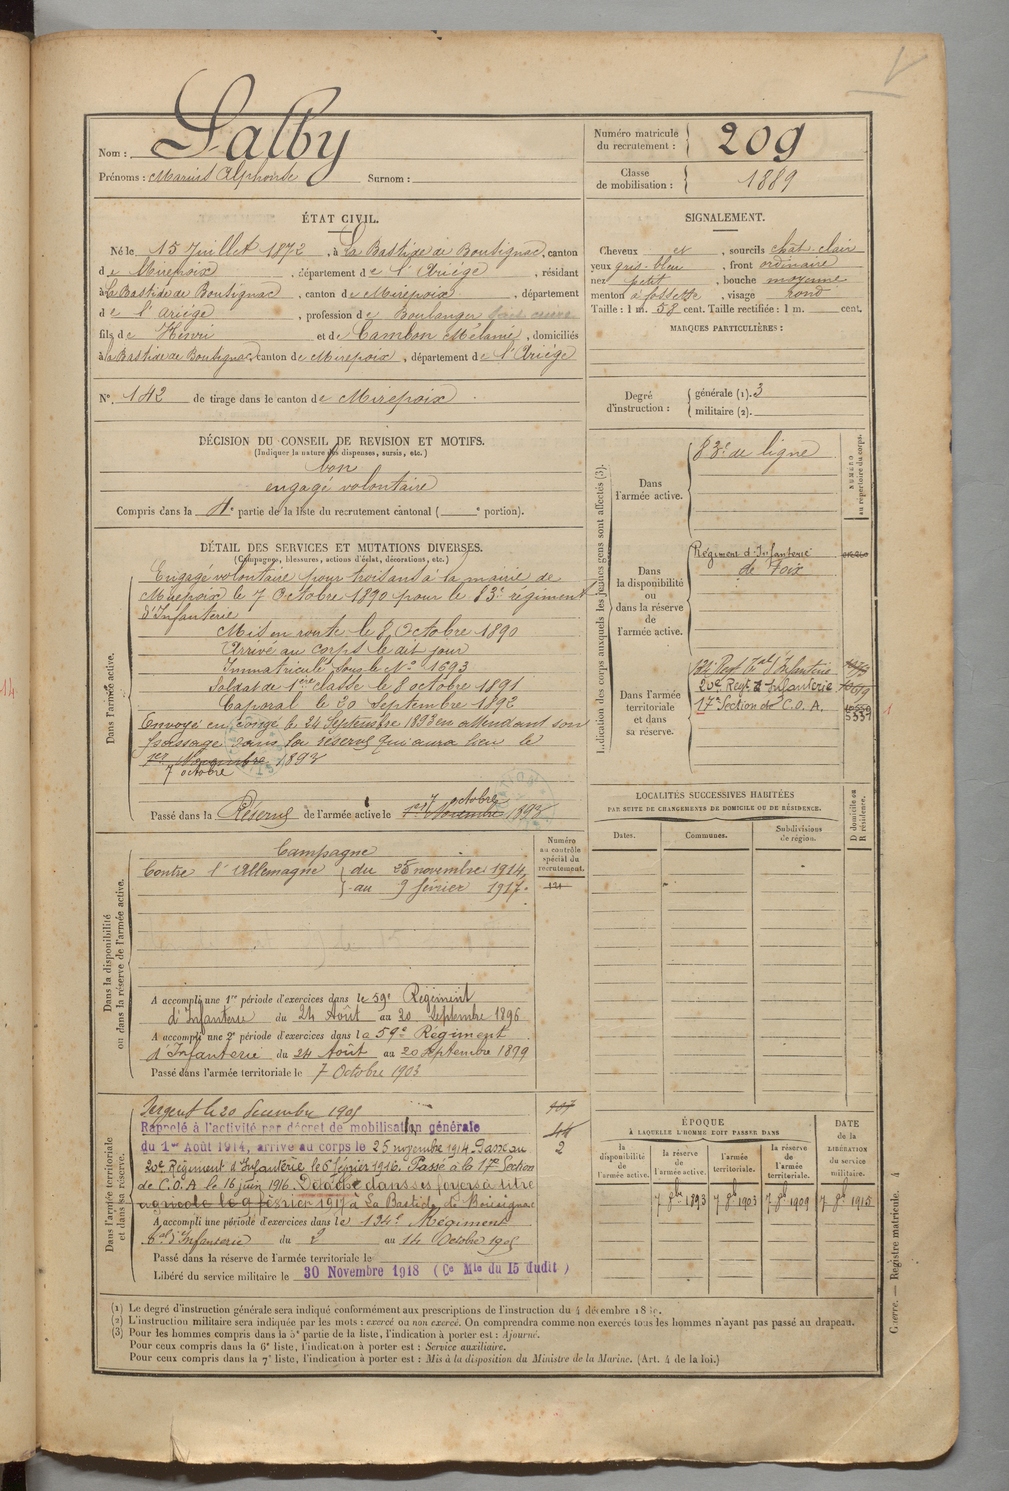 Nom : Lalby
Prénoms : Marius Alphonse Surnom :
Numéro matricule du recrutement : 209
Classe de mobilisation : 1889
ÉTAT CIVIL.
Né le 15 Juillet 1872, à La Bastide de Bousignac, canton
de Mirepoix, département de l'Ariége, résidant
à La Bastide de Bousignac, canton de Mirepoix, département
de l'Ariége, profession de Boulanger
fils de Henri et de Cambon Mélanie, domiciliés
à la Bastide de Bousignac, canton de Mirepoix, département de l'Ariége
N° 142 de tirage dans le canton de Mirepoix
SIGNALEMENT.
Cheveux et, sourcils chât. clair
yeux gris-bleu, front ordinaire
nez petit, bouche moyenne
menton à fossette, visage rond
Taille : 1 m. 58 cent. Taille rectifiée : 1 m. cent.
MARQUES PARTICULIÈRES :
Degré d'instruction : générale (1). 3
militaire (2).
DÉCISION DU CONSEIL DE REVISION ET MOTIFS.
(Indiquer la nature des dispenses, sursis, etc.)
bon
engagé volontaire
Compris dans la 4e partie de la liste du recrutement cantonal ( e portion).
DÉTAIL DES SERVICES ET MUTATIONS DIVERSES.
(Campagnes, blessures, actions d'éclat, décorations, etc.)
Dans l'armée active.
Engagé volontaire pour trois ans à la mairie de
Mirepoix le 7 Octobre 1890 pour le 83e régiment
d'Infanterie
Mis en route le 8 Octobre 1890
Arrivé au corps le dit jour
Immatriculé sous le No 1693
Soldat de 1ère classe le 8 octobre 1891
Caporal le 20 septembre 1892
Envoyé en congé le 24 Septembre 1893 en attendant son
passage dans la réserve qui aura lieu le
1er Novembre 1893
7 octobre
Passé dans la Réserve de l'armée active le 1er Novembre 1893
7 octobre
Indication des corps auxquels les jeunes gens sont affectés (3).
NUMÉRO au répertoire du corps.
Dans l'armée active.
83e de ligne
Dans la disponibilité ou dans la réserve de l'armée active.
Régiment d'Infanterie
de Foix
Dans l'armée territoriale et dans sa réserve.
134 Regt Tal d'Infanterie
20e Regt d'Infanterie
17e Section de C.O.A. 5331
LOCALITÉS SUCCESSIVES HABITÉES
PAR SUITE DE CHANGEMENTS DE DOMICILE OU DE RÉSIDENCE.
D domicile ou R résidence.
Dates. Communes. Subdivisions de région.
Dans la disponibilité ou dans la réserve de l'armée active.
Numéro au contrôle spécial du recrutement.
Campagne
Contre l'Allemagne du 25 novembre 1914,
au 9 février 1917.
A accompli une 1re période d'exercices dans le 59e Régiment
d'Infanterie du 24 Août au 20 Septembre 1896
A accompli une 2e période d'exercices dans la 59e Régiment
d'Infanterie du 24 Août au 20 Septembre 1899
Passé dans l'armée territoriale le 7 Octobre 1903
Dans l'armée territoriale et dans sa réserve.
Sergent le 20 decembre 1905
Rappelé à l'activité par décret de mobilisation générale
du 1er Août 1914, arrivé au corps le 25 novembre 1914. Passé au
20e Régiment d'Infanterie le 5 février 1916. Passé à la 17e Section
de C.O.A le 16 juin 1916. Détaché dans ses foyers à titre
agricole le 9 février 1917 à La Bastide de Bousignac
A accompli une période d'exercices dans le 134e Régiment
Tal d'Infanterie du 2 au 14 Octobre 1905
Passé dans la réserve de l'armée territoriale le
Libéré du service militaire le 30 Novembre 1918 (Ce Mle du 15 dudit)
2
ÉPOQUE
À LAQUELLE L'HOMME DOIT PASSER DANS
DATE de la LIBÉRATION du service militaire.
la disponibilité de l'armée active.
la réserve de l'armée active.
l'armée territoriale.
la réserve de l'armée territoriale.
7 8bre 1893 7 8b 1903 7 8b 1909 7 8b 1915
(1) Le degré d'instruction générale sera indiqué conformément aux prescriptions de l'instruction du 4 décembre
(2) L'instruction militaire sera indiquée par les mots : exercé ou non exercé. On comprendra comme non exercés tous les hommes n'ayant pas passé au drapeau.
(3) Pour les hommes compris dans la 5e partie de la liste, l'indication à porter est : Ajourné.
Pour ceux compris dans la 6e liste, l'indication à porter est : Service auxiliaire.
Pour ceux compris dans la 7e liste, l'indication à porter est : Mis à la disposition du Ministre de la Marine. (Art. 4 de la loi.)
Guerre. — Registre matricule. 4